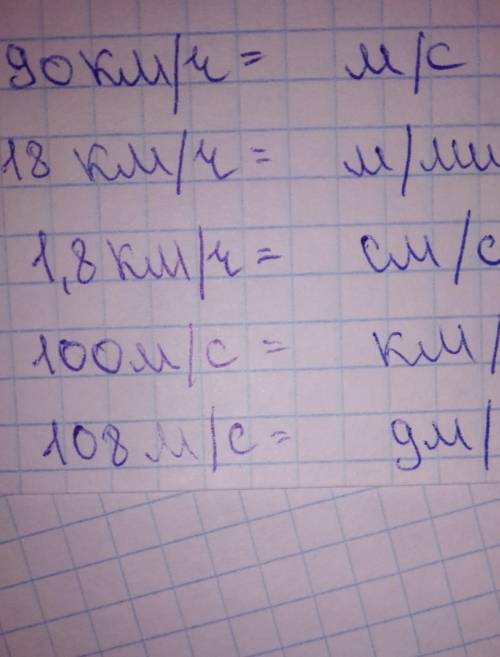 90 км/ч = м/с
18 км/ч = м/ми
1,8 км/ч = см/с
100 м/с = км/
108 м/с = дм/